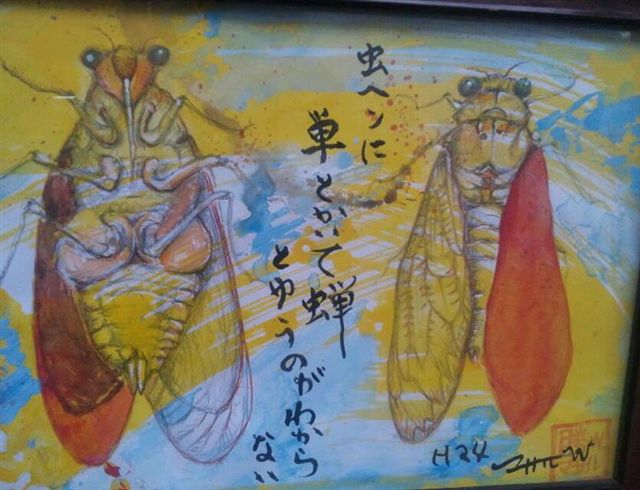 虫ヘンに
単とかいて蝉
とゆうのがわから
ない
H24